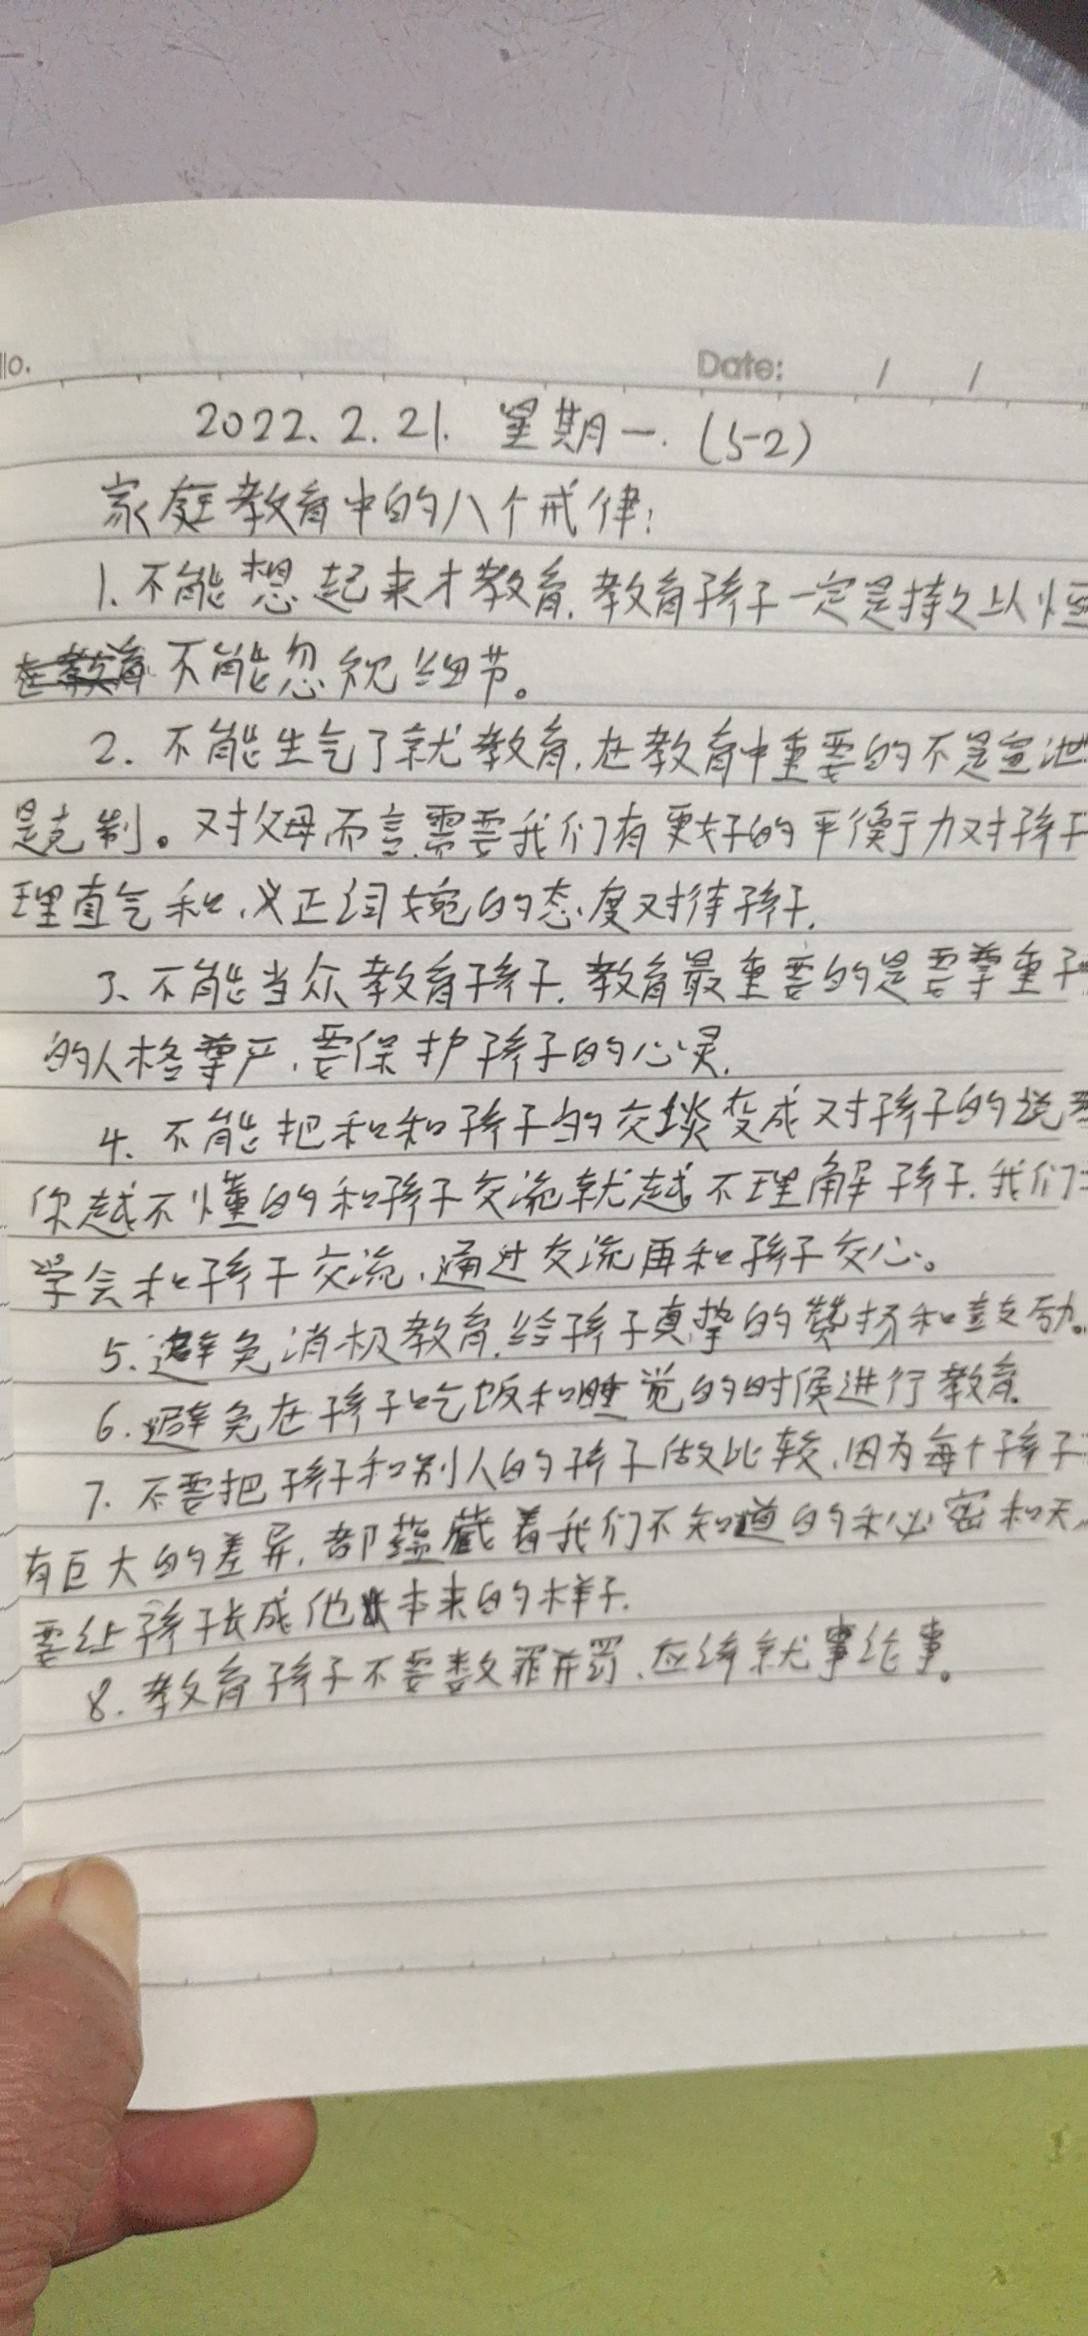 No.
Date: / /
2022.2.21. 星期一.(5-2)
家庭教育中的八个戒律:
1.不能想起来才教育,教育孩子一定是持之以恒
不能忽视细节。
2.不能生气了就教育,在教育中重要的不是宣泄
是克制。对父母而言,需要我们有更好的平衡力对孩子
理直气和,义正词婉的态度对待孩子.
3、不能当众教育孩子,教育最重要的是要尊重
的人格尊严,要保护孩子的心灵.
4、不能把和和孩子的交谈变成对孩子的说
你越不懂的和孩子交流就越不理解孩子.我们
学会和孩子交流,通过交流再和孩子交心。
5.避免消极教育,给孩子真挚的赞扬和鼓励。
6.避免在孩子吃饭和睡觉的时候进行教育.
7.不要把孩子和别人的孩子做比较,因为每个孩子
有巨大的差异,都蕴藏着我们不知道的秘密和天
要让孩子长成他本来的样子.
8.教育孩子不要数罪并罚,应该就事论事。